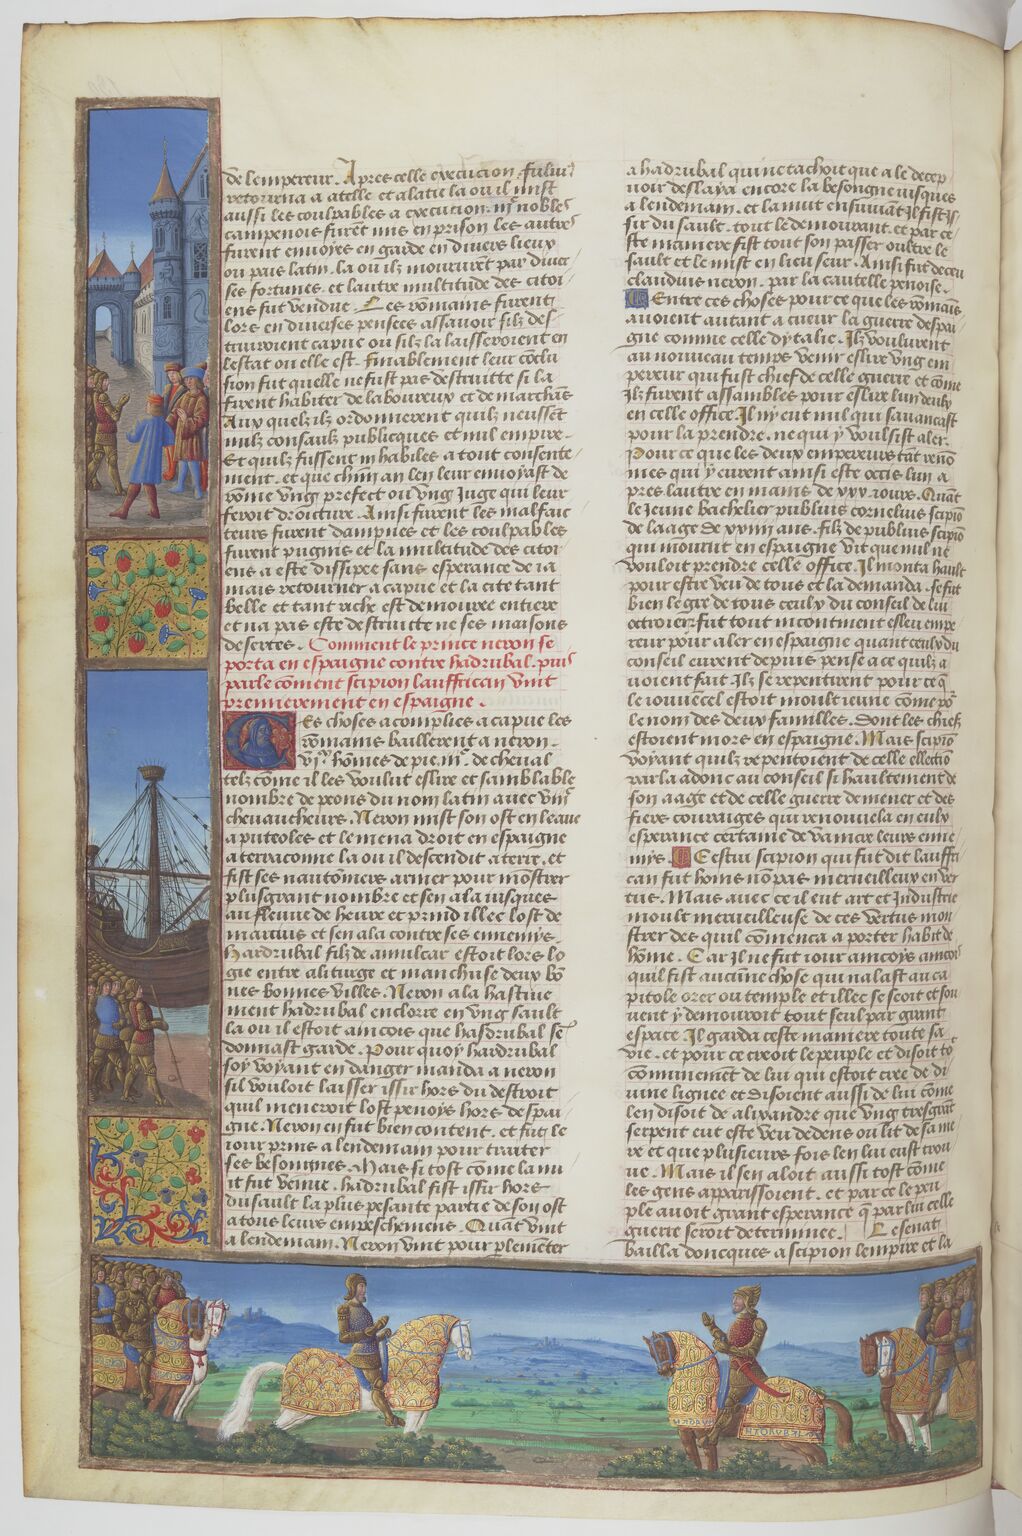 de lempereur. Apres celle execucion. fuluiꝰ
retourna a atelle et a alatie la ou il mist
aussi les coulpables a execucion. iijc nobles
campenois furẽt mis en prison les autres
furent enuoyes en garde en diuers lieux
ou pais latin. la ou ilz moururẽt par diuer
ses fortunes. et lautre multitude des citoi
ens fut vendue. Les rõmains furent
lors en diuerses pensees assauoir silz des
truiroient capue ou silz la laisseroient en
lestat ou elle est. finablement leur cõclu
sion fut quelle ne fust pas destruitte si la
firent habiter de laboureux et de marchans
Aux quelz ilz ordonnerent quilz neussẽt
nulz consaulz publicques et nul empire.
Et quilz fussent inhabiles a tout consente
ment. et que chũn an len leur enuoyast de
rõme vng prefect ou vng Juge qui leur
feroit droicture. Ainsi furent les malfaic
teurs furent dampnes et les coulpables
furent pugnis et la multitude des citoi
ens a este dissipee sans esperance de ia
mais retourner a capue et la cite tant
belle et tant riche est demouree entiere
et na pas este destruitte ne ses maisons
desertes. Comment le prince neron se
porta en espaigne contre hadrubal. puis
parle cõment scipion lauffrican vint
premierement en espaigne.
Ces choses acomplies a capue les
rõmains baillerent a neron.
vjm hõmes de pie. iijc de cheual
telz cõme il les voulut eslire et samblable
nombre de peons du nom latin auec viijc
cheuaucheurs. Neron mist son ost en leaue
a puteoles et le mena droit en espaigne
a terraconne la ou il descendit a terre. et
fist ses nautõniers armer pour mõstrer
plus grant nombre et sen ala iusques
au fleuue de heure et prind illec lost de
marcius et sen ala contre ses ennemys.
Hardrubal filz de amulcar estoit lors lo
gie entre aliturge et manchise deux bõ
nes bonnes villes. Neron ala hastiue
ment hadrubal enclorre en vng sault
la ou il estoit ancois que hasdrubal se
donnast garde. Pour quoy hardrubal
soy voyant en dangier manda a neron
sil vouloit laisser issir hors du destroit
quil meneroit lost penoys hors despai
gne. Neron en fut bien content. et fut le
iour prins a lendemain pour traiter
ses besongnes. Mais si tost cõme la nu
it fut venue. hadrubal fist issir hors
du sault la plus pesante partie de son ost
a tous leurs empeschemens. Quãt vint
a lendemain. Neron vint pour plemẽter
a hadrubal qui ne tachoit que a le decep
uoir deslaya encore la besongne iusques
a lendemain. et la nuit ensuiuant Jl fist is
sir du sault. tout le demourant. et par ce
ste maniere fist tout son passer oultre le
sault et le mist en lieu seur. Ainsi fut deceu
claudius neron. par la cautelle penoise.
Entre ces choses pour ce que les rõmais
auoient autant a cueur la guerre despai
gne comme celle dytalie. Jlz voulurent
au nouueau temps venir eslire vng em
pereur qui fust chief de celle guerre et cõme
Jlz furent assambles pour eslire lun deulx
en celle office. Jl ny eut nul qui sauancast
pour la prendre. ne qui y voulsist aler.
Pour ce que les deux empereurs tãt renõ
mes qui y eurent ainsi este occis lun a
pres lautre en mains de xxx. iours. Quãt
le Jeune bachelier publius cornelius scipiõ
de laage de xxiiij ans. filz de publius scipiõ
qui mourut en espaigne vit que nul ne
vouloit prendre celle office. Jl monta hault
pour estre veu de tous et la demanda. se fut
bien le gre de tous ceulx du conseil de lui
octroier. fut tout incontinent esleu empe
reur pour aler en espaigne quant ceulx du
conseil eurent depuis pense a ce quilz a
uoient fait. Jlz se repentirent pour ce q̃
le iouuẽcel estoit moult ieune cõme po͛
le nom des deux familles. Dont les chief
estoient mors en espaigne. Mais scipiõ
voyant quilz repentoient de celle ellectiõ
parla adonc au conseil si haultement de
son aage et de celle guerre de mener et des
fiers couraiges qui renouuela en eulx
esperance certaine de vaincre leurs enne
mys. Cestui scipion qui fut dit lauffri
can fut homs nõ pas merueilleux en ver
tus. Mais auec ce il eut art et Jndustrie
moult merueilleuse de ces vertus mon
strer des quil cõmenca a porter habit de
hõme. Car Jl ne fut iour ancoys
quil fist aucũne chose qui nalast au ca
pitole orer ou temple et illec se seoit et sou
uent y demouroit tout seul par grant
espace. Jl garda ceste maniere toute sa
vie. et pour ce creoit le peuple et disoit to
cõmunement de lui qui estoit cree de di
uine lignee et disoient aussi de lui cõme
len disoit de alixandre que vng tresgrãt
serpent eut este veu dedens ou lit de sa me
re et que plusieurs fois len lui eust trou
ue. Mais il sen aloit aussi tost cõme
les gens apparissoient. et par ce le peu
ple auoit grant esperance q̃ par lui celle
guerre seroit determinee. Le senat
bailla doncques a scipion lempire et la